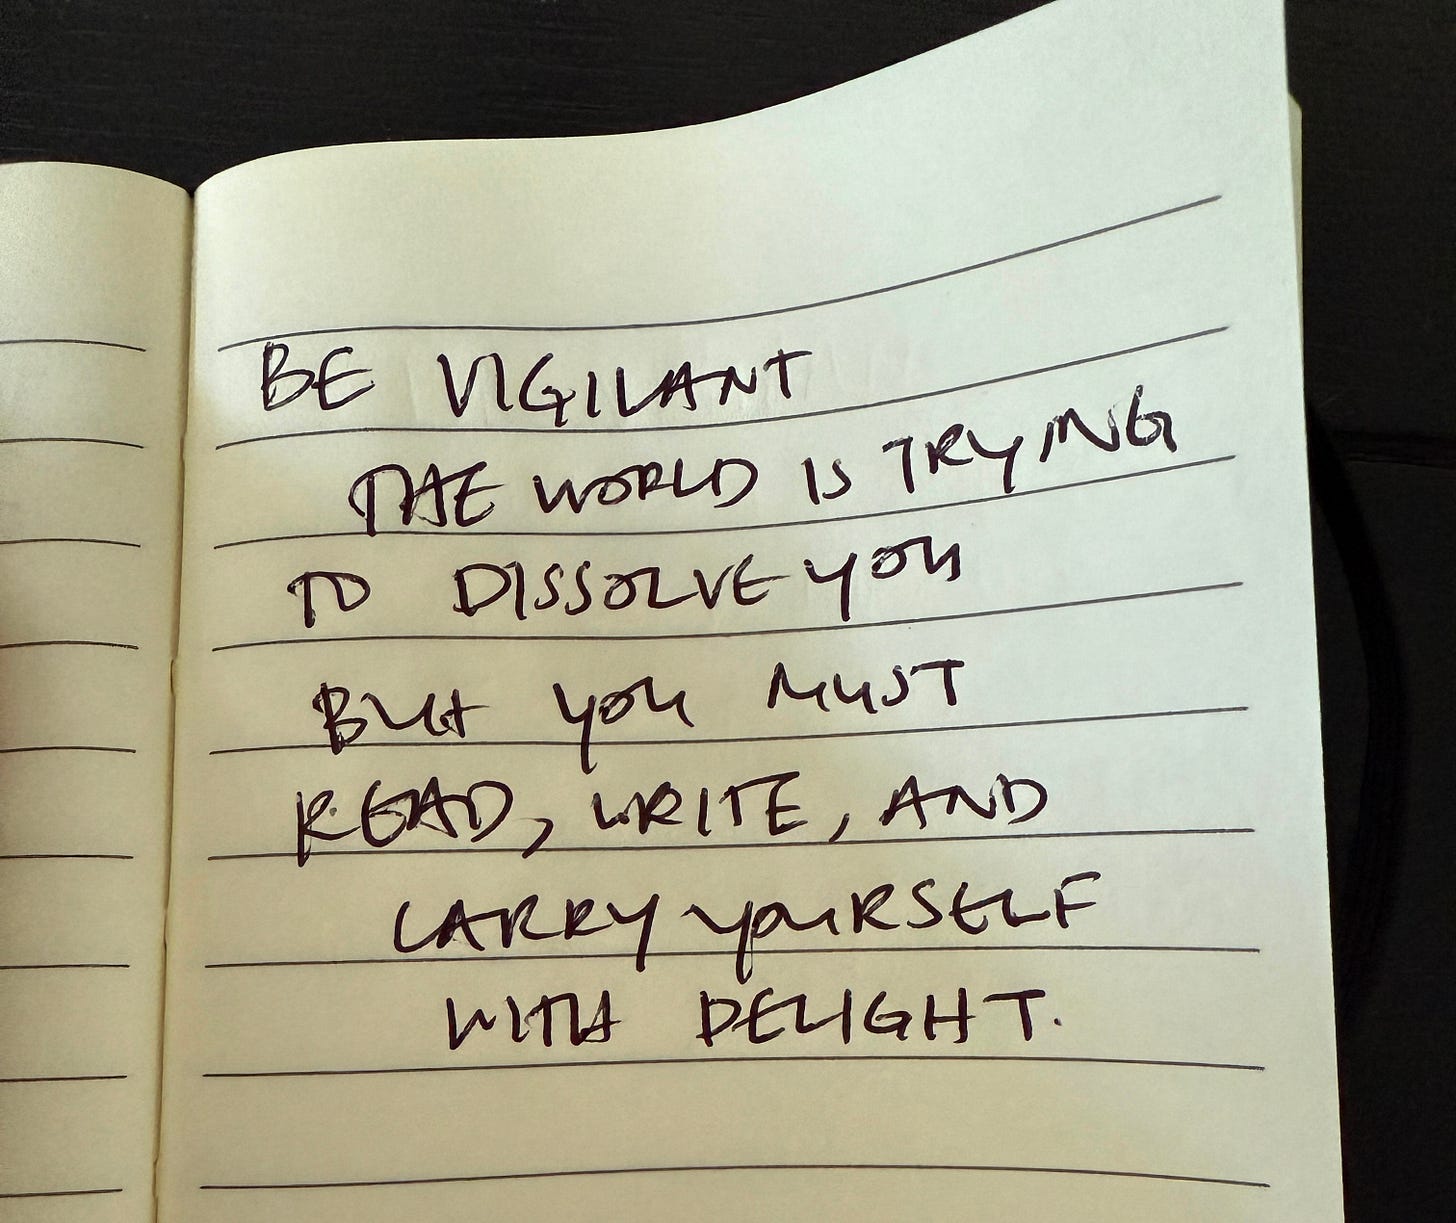 BE VIGILANT
THE WORLD IS TRYING
TO DISSOLVE YOU
BUT YOU MUST
READ, WRITE, AND
CARRY YOURSELF
WITH DELIGHT.